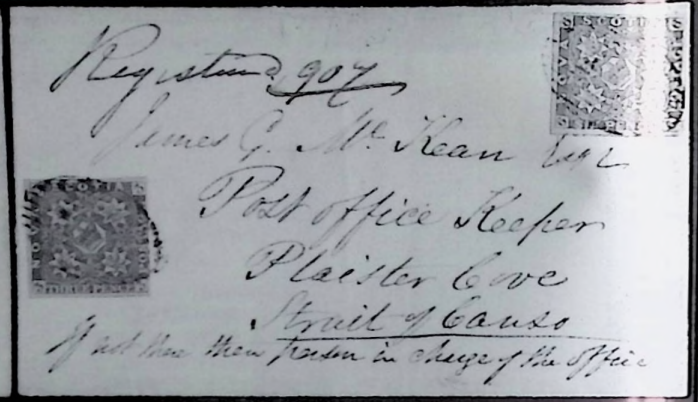 Registered 907
James G. Mc Kean Esqr
Post office Keeper
Plaister Cove
Strait of Canso
If not there then person in charge of the office
NOVA SCOTIA
THREE PENCE
NOVA SCOTIA
PENCE